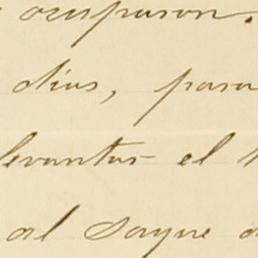 ocuparon.
dias, para
levantar el
al Sayue